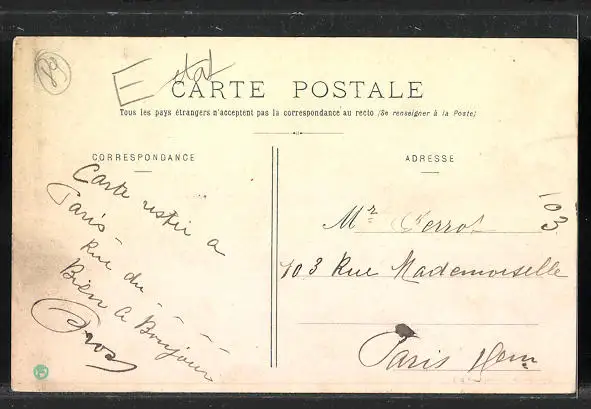 89
E etat
CARTE POSTALE
Tous les pays étrangers n'acceptent pas la correspondance au recto (Se renseigner à la Poste)
CORRESPONDANCE
Carte restée a
Paris
Rue du
Bien le Bonjour
ADRESSE
103
Mr Perrot
103 Rue Mademoiselle
Paris